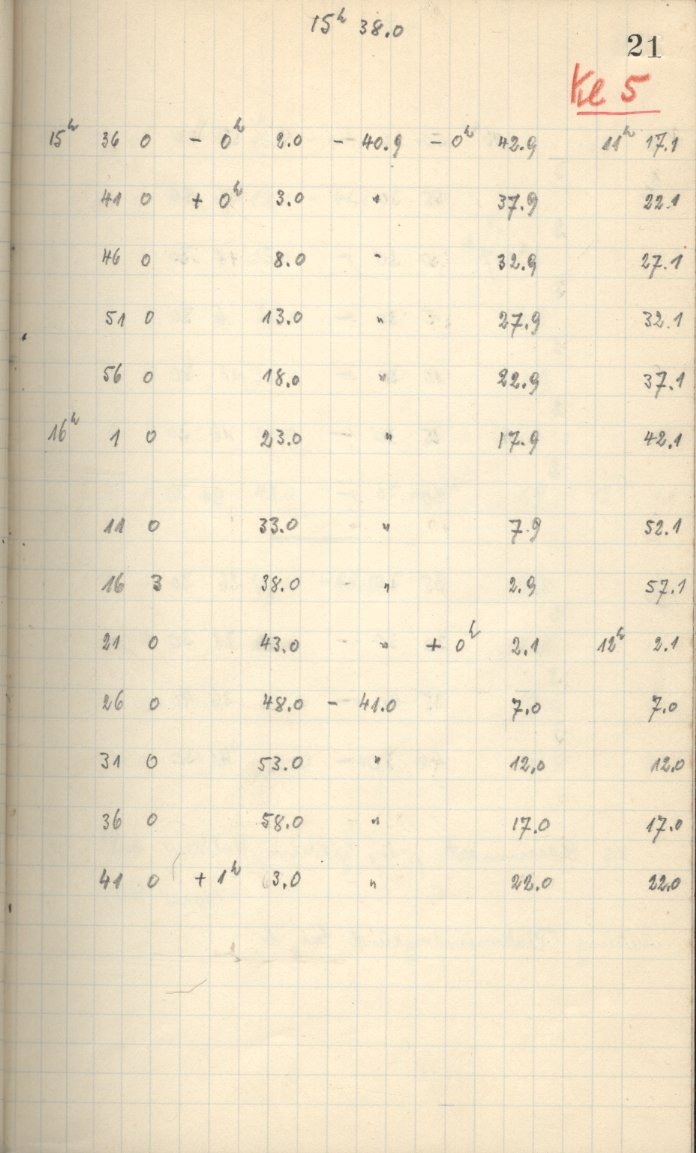 15ʰ 38.0
21
Kl 5
15ʰ 36 0 - 0ʰ 2.0 - 40.9 - 0ʰ 42.9 11ʰ 17.1
41 0 + 0ʰ 3.0 " 37.9 22.1
46 0 8.0 " 32.9 27.1
51 0 13.0 " 27.9 32.1
56 0 18.0 " 22.9 37.1
16ʰ 1 0 23.0 " 17.9 42.1
11 0 33.0 " 7.9 52.1
16 3 38.0 " 2.9 57.1
21 0 43.0 " + 0ʰ 2.1 12ʰ 2.1
26 0 48.0 - 41.0 7.0 7.0
31 0 53.0 " 12.0 12.0
36 0 58.0 " 17.0 17.0
41 0 + 1ʰ 3.0 " 22.0 22.0